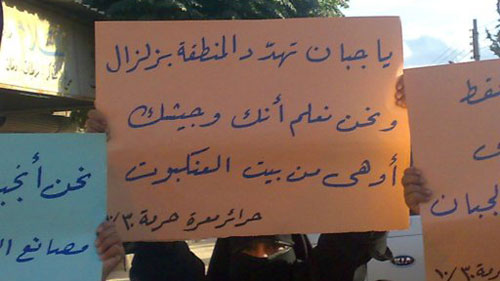 يا جبان تهدد المنطقة بزلزال
ونحن نعلم أنك وجيشك
أوهى من بيت العنكبوت
حرائر معرة حرمة ١٠/٣٠
نحن أنجب
مصانع ال
قط
ك
لجبان
١٠/٣٠